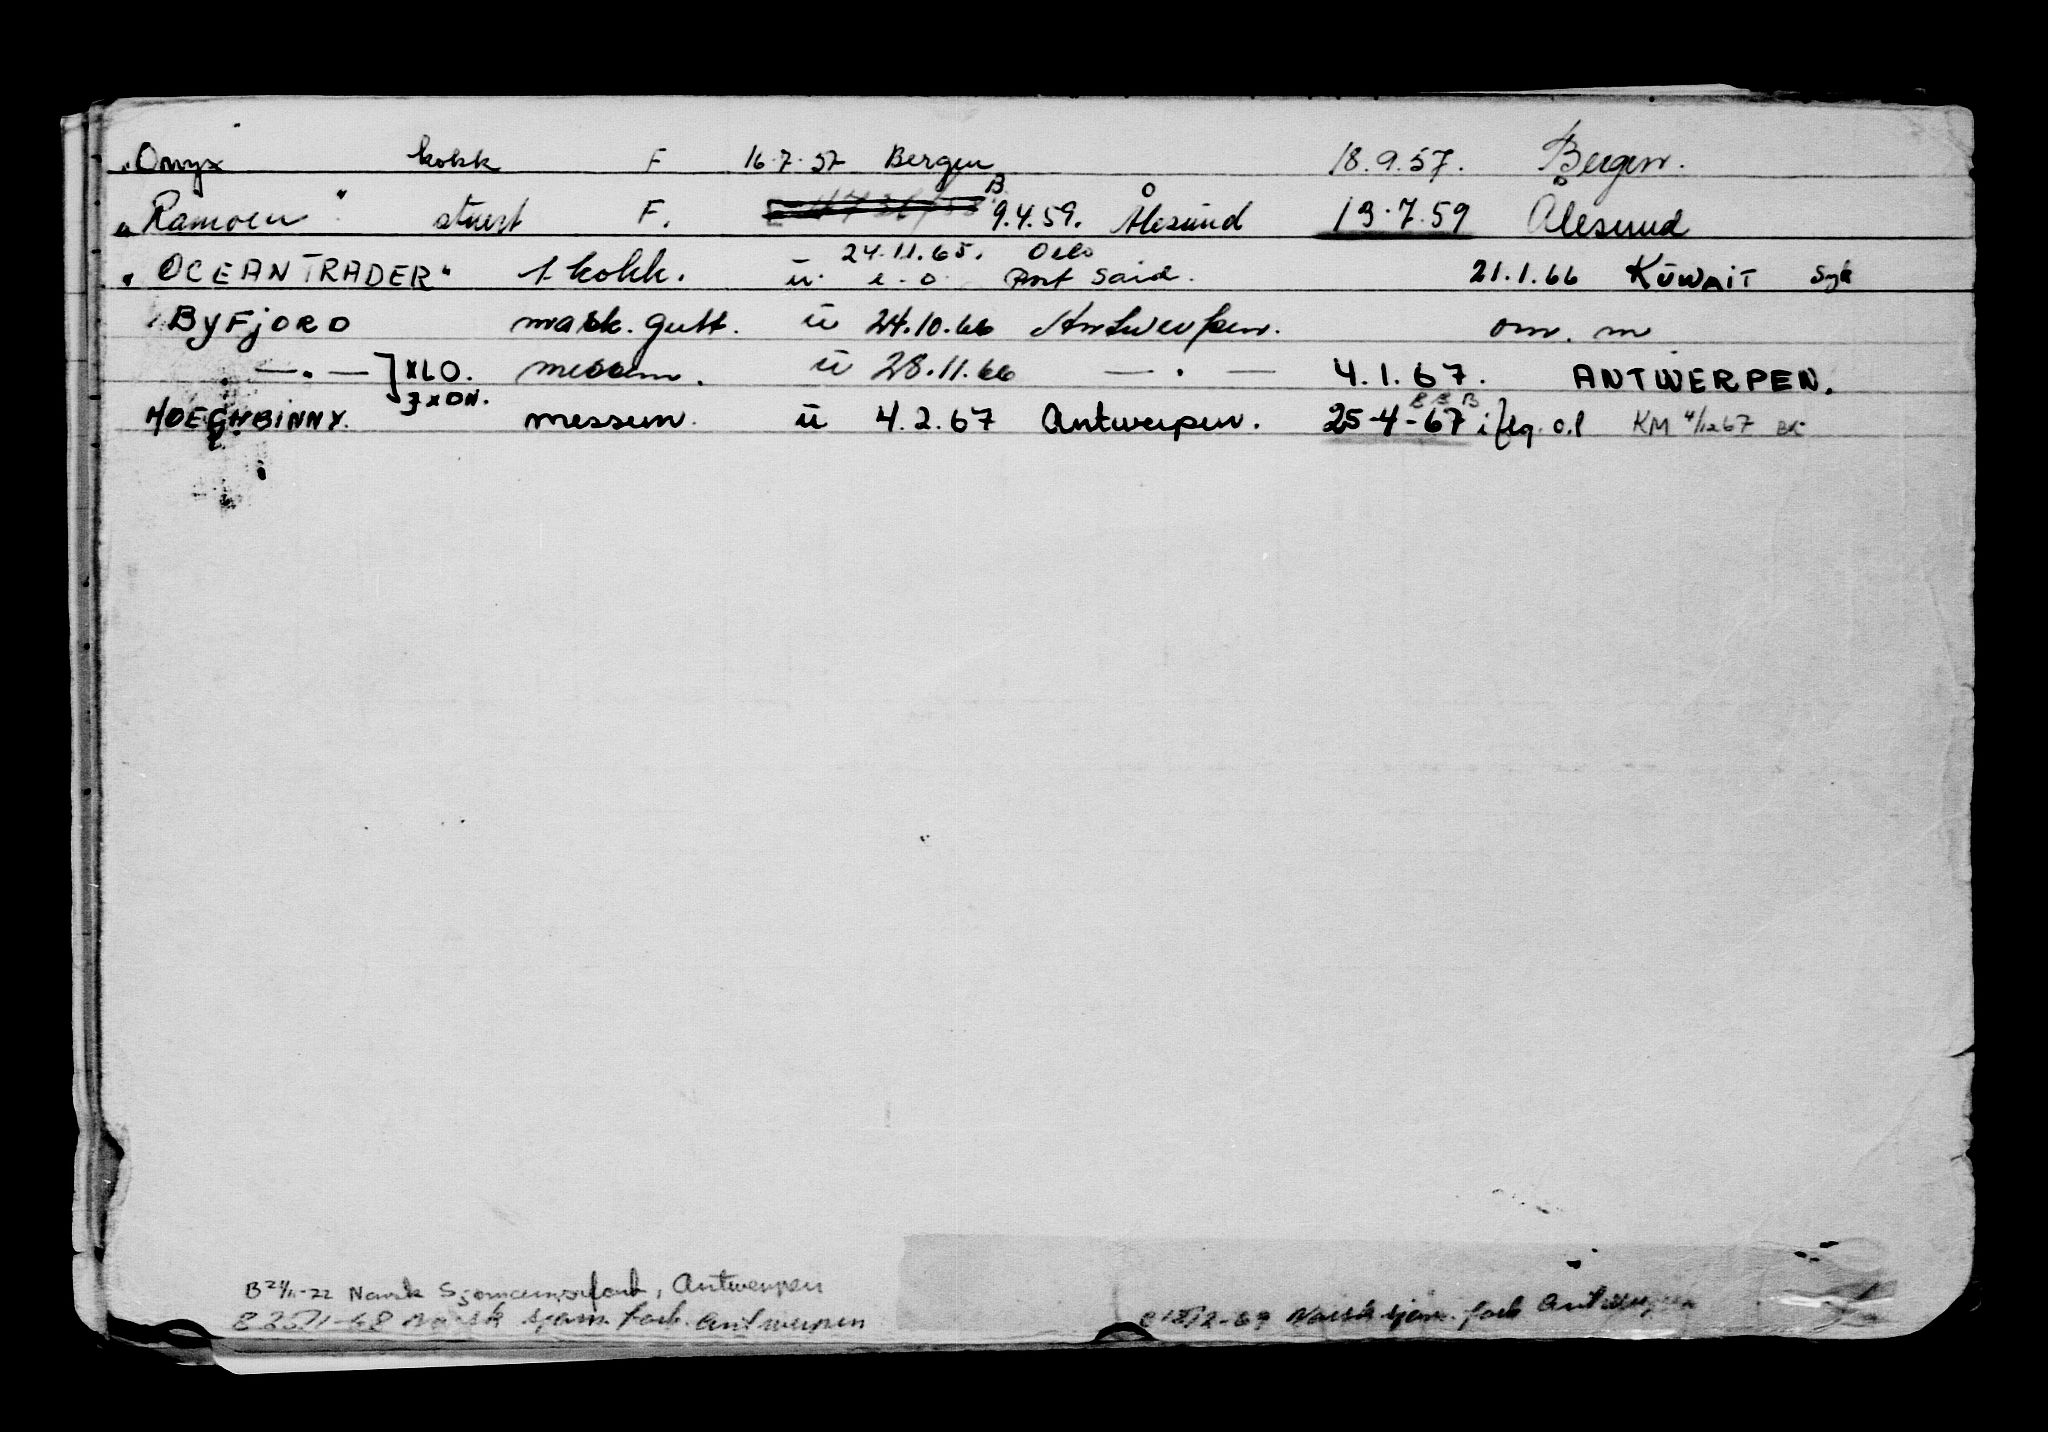 "Onyx kokk F 16.7.57 Bergen 18.9.57. Bergen.
"Ramoen" stuert F. B 9.4.59. Ålesund 19.7.59 Ålesund
24.11.65. Oslo
"OCEANTRADER" 1. kokk. u e.o Port Said. 21.1.66 KUWAIT Syk
BYFJORD mask. gutt. u 24.10.66 Antwerpen. om. m
— . — ] XLO. messm. u 28.11.66 — . — 4.1.67. ANTWERPEN.
HOEGH BINNY. messem. u 4.2.67 Antwerpen. 25-4-67 i flg. o.l KM 4/12 67 BK
Norsk Sjømannsforb, Antwerpen
Norsk sjøm. forb. Antwerpen
Norsk sjøm. forb Antwerpen